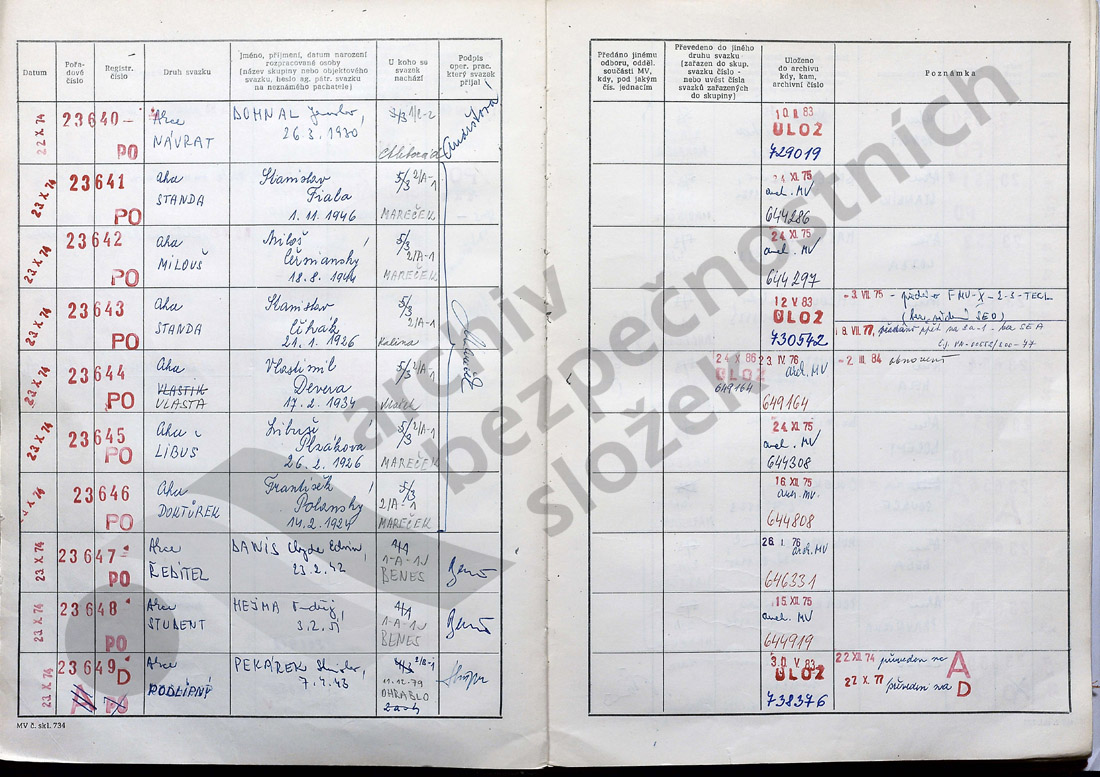 Datum
Pořa-
dové
číslo
Registr.
číslo
Druh svazku
Jméno, příjmení, datum narození
rozpracované osoby
(název skupiny nebo objektového
svazku, heslo sg. pátr. svazku
na neznámého pachatele)
U koho se
svazek
nachází
Podpis
oper. prac.
který svazek
přijal
22 X 74
23640
PO
Akce
NÁVRAT
DOMNAL
26. 3. 1930
23. X. 74
23641
PO
aka
STANDA
Stanislav
Fiala
1. 11. 1946
5/3 2/A-1
MAREČEK
23. X. 74
23642
PO
aka
MILOUŠ
Miloš
18. 8. 1944
5/3
2/A-1
MAREČEK
23. X. 74
23643
PO
aka
STANDA
Stanislav
Čihák
21. 1. 1926
5/3
2/A-1
Kalina
23. X. 74
23644
PO
Aka
VLASTIK
VLASTA
Vlastimil
Devera
17. 2. 1934
5/3 2/A-1
23. X. 74
23645
PO
Aka
LIBUS
Libuše
Plzákova
26. 2. 1926
5/3 2/A-1
MAREČEK
23. X. 74
23646
PO
Aka
DOKTŮREK
František
Polanský
14. 2. 1924
5/3
2/A-1
MAREČEK
23. X. 74
23647
PO
Akce
ŘEDITEL
DANIS Clyde Edwin,
23. 2. 42
1-A-1J
BENES
23. X. 74
23648
PO
Akce
STUDENT
HEJMA Ondřej,
3. 2. 51
1-A-1J
BENES
23. X. 74
23649
D
A PO
Akce
PODLIPNÝ
PEKÁREK
7. 4. 43
2/A-1
11.12.79
OHRABLO
MV č. skl. 734
Předáno jinému
odboru, odděl.
součásti MV,
kdy, pod jakým
čís. jednacím
Převedeno do jiného
druhu svazku
(zařazen do skup.
svazku číslo -
nebo uvést čísla
svazků zařazených
do skupiny)
Uloženo
do archivu
kdy, kam,
archivní číslo
Poznámka
ULOŽ
729019
24. XI. 75
arch. MV
644286
24. XI. 75
arch. MV
644297
12 V 83
ULOŽ
730542
-3. VII. 75 - předán FMV-X-2-S-TECL
18. VII. 77, předání zpět na 2a-1
24 X 86
ULOŽ
649164
23. IV. 76
arch. MV
649164
-2. III. 84 obnovení
24. XI. 75
arch. MV
644308
16. XII. 75
arch. MV.
644808
26. I. 76
arch. MV
646331
15. XII. 75
arch. MV
644919
30. V. 83
ULOŽ
738376
22. XII. 74 převeden na A
22. X. 77 převeden na D
archiv
bezpečnostních
složek